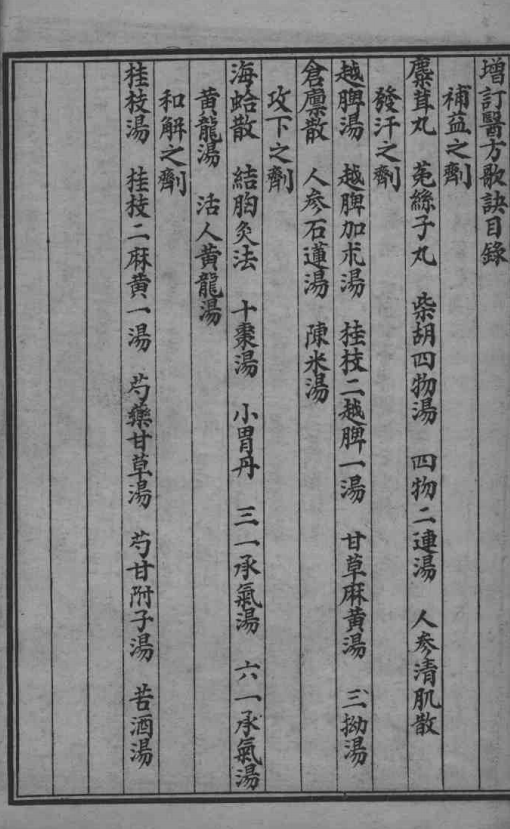 增訂醫方歌訣目錄
補益之劑
麋茸丸　菟絲子丸　柴胡四物湯　四物二連湯　人參清肌散
發汗之劑
越脾湯　越脾加朮湯　桂枝二越脾一湯　甘草麻黃湯　三拗湯
倉廩散　人參石蓮湯　陳米湯
攻下之劑
海蛤散　結胸灸法　十棗湯　小胃丹　三一承氣湯　六一承氣湯
黃龍湯　活人黃龍湯
和解之劑
桂枝湯　桂枝二麻黃一湯　芍藥甘草湯　芍甘附子湯　苦酒湯